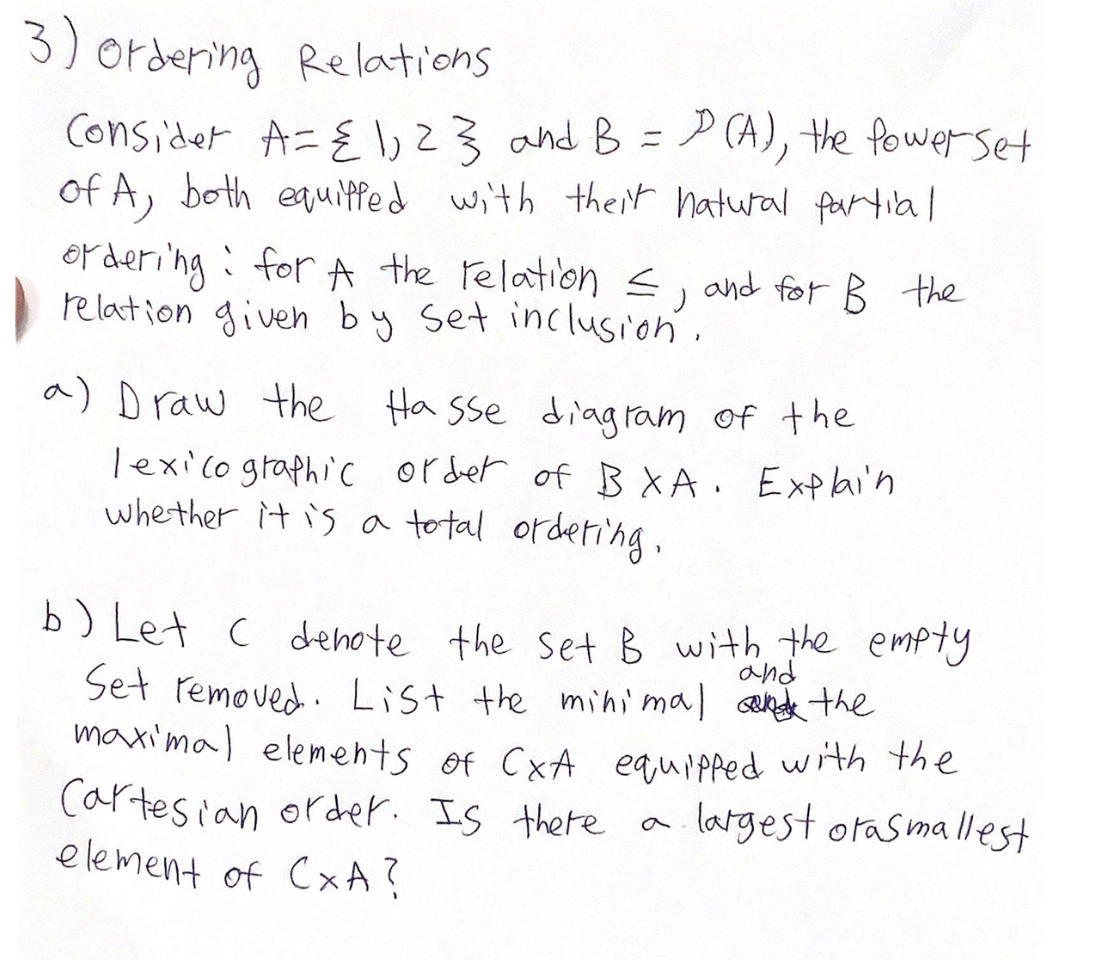 3) Ordering Relations
Consider A = {1, 2} and B = P(A), the powerset
of A, both equipped with their natural partial
ordering: for A the relation ≤, and for B the
relation given by set inclusion.
a) Draw the Hasse diagram of the
lexicographic order of B X A. Explain
whether it is a total ordering.
b) Let C denote the set B with the empty
and
Set removed. List the minimal the
maximal elements of C×A equipped with the
Cartesian order. Is there a largest or a smallest
element of C×A?